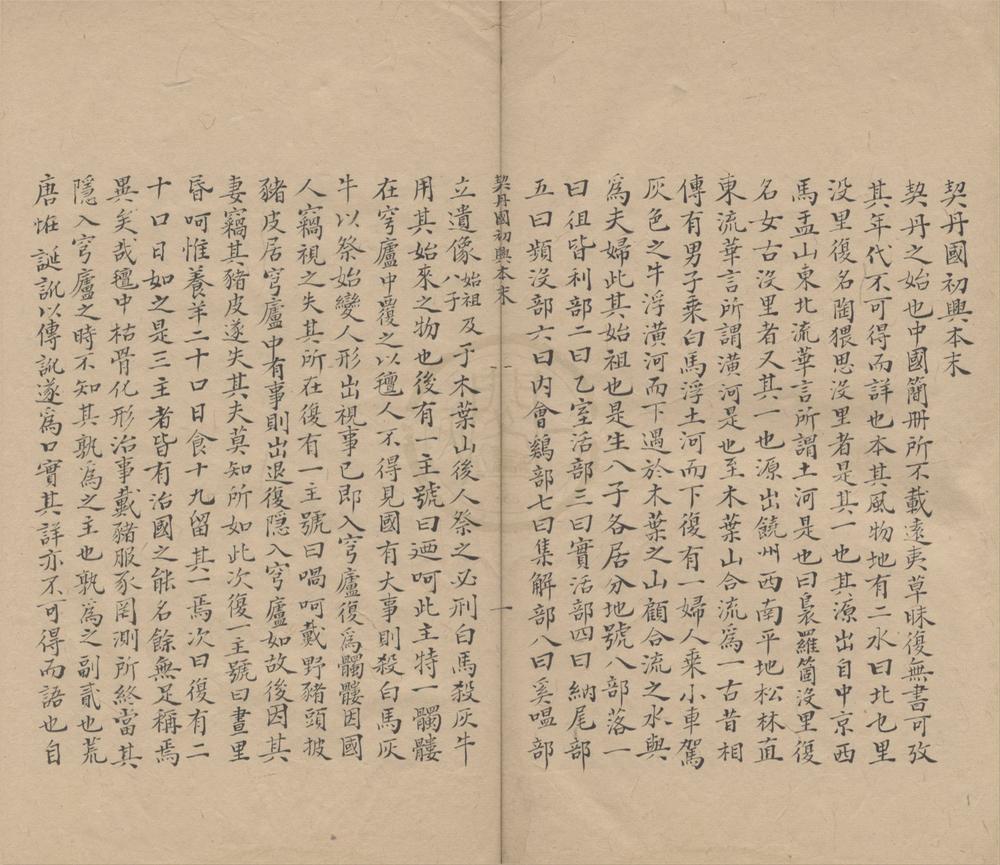 契丹國初興本末
契丹之始也中國簡册所不載遠夷草昧復無書可攷
其年代不可得而詳也本其風物地有二水曰北乜里
没里復名陶猥思没里者是其一也其源出自中京西
馬盂山東北流華言所謂土河是也曰裊羅箇没里復
名女古没里者又其一也源出饒州西南平地松林直
東流華言所謂潢河是也至木葉山合流爲一古昔相
傳有男子乘白馬浮土河而下復有一婦人乘小車駕
灰色之牛浮潢河而下遇於木葉之山顧合流之水與
爲夫婦此其始祖也是生八子各居分地號八部落一
曰徂皆利部二曰乙室活部三曰實活部四曰納尾部
五曰頻没部六曰内會鷄部七曰集解部八曰奚嗢部
契丹國初興本末 一
立遺像始祖及八子于木葉山後人祭之必刑白馬殺灰牛
用其始來之物也後有一主號曰廼呵此主特一髑髏
在穹廬中覆之以氊人不得見國有大事則殺白馬灰
牛以祭始變人形出視事已即入穹廬復爲髑髏因國
人竊視之失其所在復有一主號曰喎呵戴野豬頭披
豬皮居穹廬中有事則出退復隱入穹廬如故後因其
妻竊其豬皮遂失其夫莫知所如此次復一主號曰晝里
昏呵惟養羊二十口日食十九留其一焉次日復有二
十口日如之是三主者皆有治國之能名餘無足稱焉
異矣哉氊中枯骨化形治事戴豬服豕罔測所終當其
隱入穹廬之時不知其孰爲之主也孰爲之副貳也荒
唐恠誕訛以傳訛遂爲口實其詳亦不可得而語也自